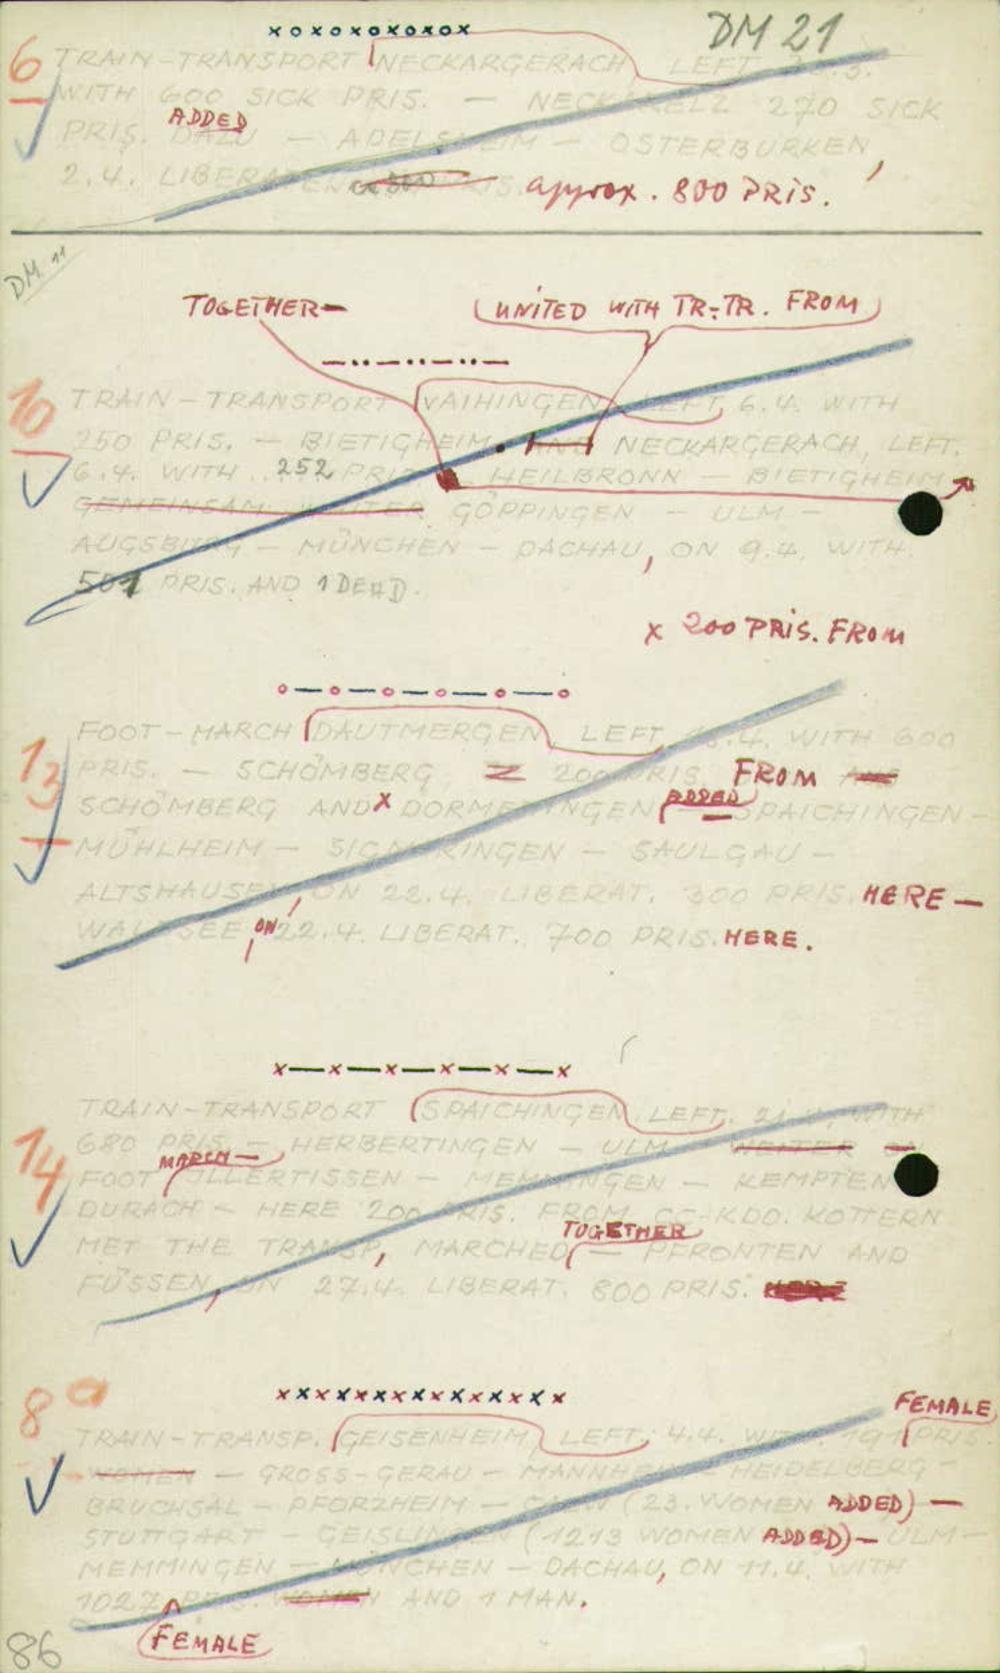 xoxoxoxoxox
DM 21
6 TRAIN-TRANSPORT NECKARGERACH LEFT
WITH 600 SICK PRIS. — NECKARELZ 270 SICK
ADDED
PRIS. DAZU — ADELSHEIM — OSTERBURKEN,
2.4. approx. 800 PRIS.
DM 11
TOGETHER— UNITED WITH TR-TR. FROM
—··—··—··—
10 TRAIN-TRANSPORT VAIHINGEN LEFT 6.4. WITH
250 PRIS. — BIETIGHEIM. AND NECKARGERACH, LEFT.
6.4. WITH 252 HEILBRONN — BIETIGHEIM
GEMEINSAM WEITER GÖPPINGEN — ULM —
AUGSBURG — MÜNCHEN — DACHAU, ON 9.4. WITH
501 PRIS. AND 1 DEAD.
x 200 PRIS. FROM
o—o—o—o—o—o
13 FOOT-MARCH DAUTMERGEN LEFT WITH 600
PRIS. — SCHÖMBERG 200 PRIS. FROM AUS
SCHÖMBERG AND x DORMETTINGEN ADDED — SPAICHINGEN —
MÜHLHEIM — SIGMARINGEN — SAULGAU —
ALTSHAUSEN, ON 22.4. LIBERAT. 300 PRIS. HERE —
WALDSEE, ON 22.4. LIBERAT. 700 PRIS. HERE.
x—x—x—x—x—x
TRAIN-TRANSPORT SPAICHINGEN LEFT. WITH
14 680 PRIS. — HERBERTINGEN — ULM — WEITER
MARCH —
FOOT ILLERTISSEN — MEMMINGEN — KEMPTEN
DURACH — HERE 200 PRIS. FROM CC-KDO. KOTTERN
TOGETHER
MET THE TRANSP, MARCHED — PFRONTEN AND
FÜSSEN, ON 27.4. LIBERAT. 800 PRIS.
xxxxxxxxxxxxxxx
8a FEMALE
TRAIN-TRANSP. GEISENHEIM LEFT. 4.4. WITH PRIS.
WOMEN — GROSS-GERAU — MANNHEIM — HEIDELBERG —
BRUCHSAL — PFORZHEIM — CALW (23. WOMEN ADDED) —
STUTTGART — GEISLINGEN (1213 WOMEN ADDED) — ULM —
MEMMINGEN — MÜNCHEN — DACHAU, ON 11.4. WITH
1027 PRIS. WOMEN AND 1 MAN.
FEMALE
86